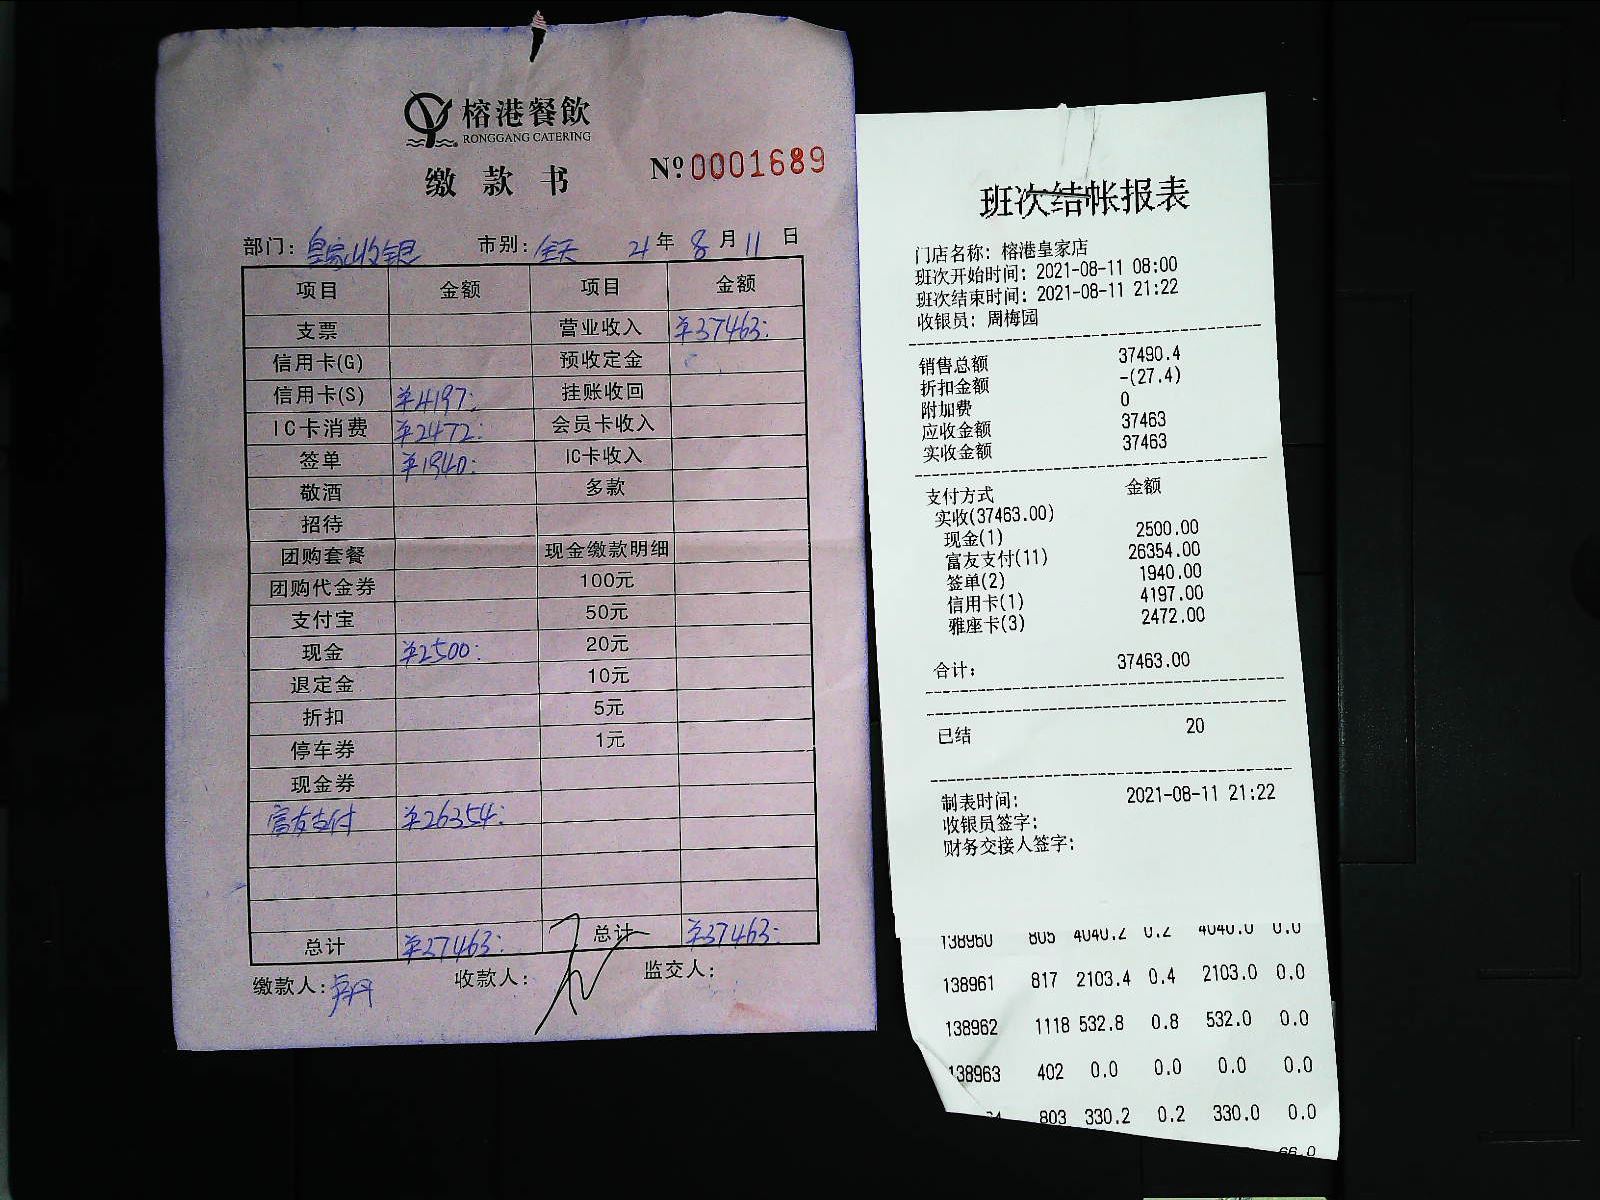 榕港餐飲
RONGGANG CATERING
缴款书
№0001689
部门：皇家收银 市别：全天 21年8月11日
项目 金额 项目 金额
支票 营业收入 ¥37463:
信用卡(G) 预收定金
信用卡(S) ¥4197: 挂账收回
IC卡消费 ¥2472: 会员卡收入
签单 ¥1940: IC卡收入
敬酒 多款
招待
团购套餐 现金缴款明细
团购代金券 100元
支付宝 50元
现金 ¥2500: 20元
退定金 10元
折扣 5元
停车券 1元
现金券
富友支付 ¥26354:
总计 ¥37463: 总计 ¥37463:
缴款人： 收款人： 监交人：
班次结帐报表
门店名称：榕港皇家店
班次开始时间：2021-08-11 08:00
班次结束时间：2021-08-11 21:22
收银员：周梅园
销售总额 37490.4
折扣金额 -(27.4)
附加费 0
应收金额 37463
实收金额 37463
支付方式 金额
实收(37463.00)
现金(1) 2500.00
富友支付(11) 26354.00
签单(2) 1940.00
信用卡(1) 4197.00
雅座卡(3) 2472.00
合计： 37463.00
已结 20
制表时间： 2021-08-11 21:22
收银员签字：
财务交接人签字：
138960 805 4040.2 0.2 4040.0 0.0
138961 817 2103.4 0.4 2103.0 0.0
138962 1118 532.8 0.8 532.0 0.0
138963 402 0.0 0.0 0.0 0.0
803 330.2 0.2 330.0 0.0